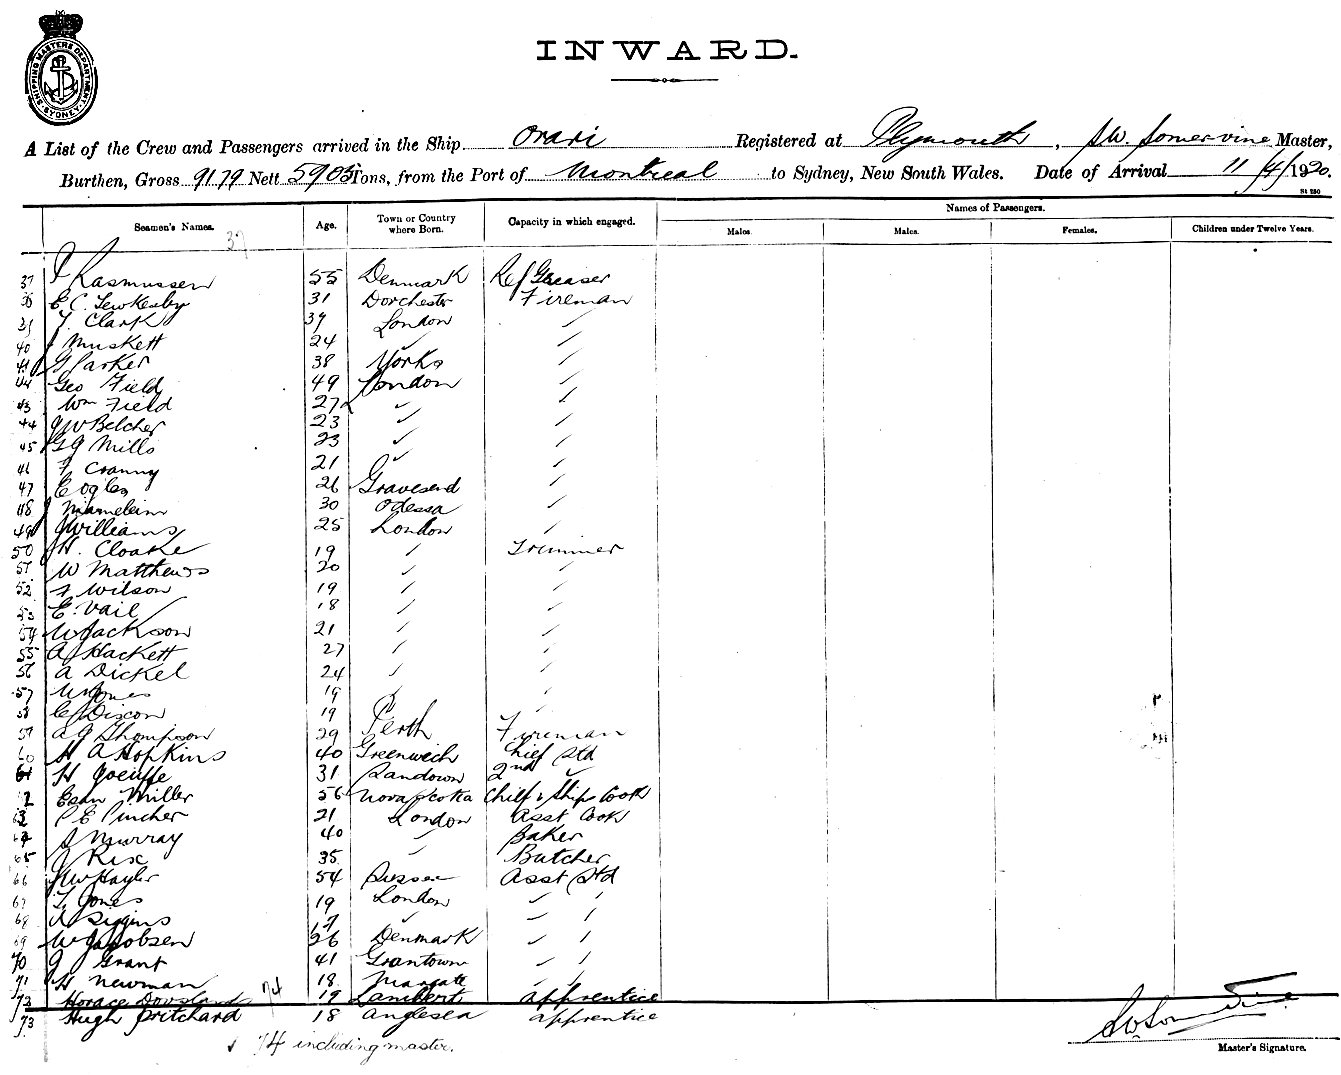 SHIPPING MASTERS DEPARTMENT SYDNEY
INWARD.
A List of the Crew and Passengers arrived in the Ship Orari Registered at Plymouth, S.W. Somervine Master,
Burthen, Gross 9179 Nett 5905 Tons, from the Port of Montreal to Sydney, New South Wales. Date of Arrival 11/4/1920.
St 250
Seamen's Names. Age. Town or Country where Born. Capacity in which engaged. Names of Passengers.
Males. Males. Females. Children under Twelve Years.
37
37 Rasmussen 55 Denmark Ref Greaser
38 E C Tewkesby 31 Dorchester Fireman
39 Clark 39 London "
40 J Muskett 24 " "
41 G Parker 38 Yorks "
42 Geo Field 49 London "
43 Wm Field 27 " "
44 J W Belcher 23 " "
45 G J Mills 23 " "
46 F Cranny 21 " "
47 E Ogles 26 Gravesend "
48 J 30 Odessa "
49 J Williams 25 London "
50 H. Cloake 19 " Trimmer
51 W Matthews 20 " "
52 F Wilson 19 " "
53 E. Vail 18 " "
54 W Jackson 21 " "
55 A Hackett 27 " "
56 A Dickel 24 " "
57 W Jones 19 " "
58 E Discon 19 Perth Fireman
59 A J Thompson 29 "
60 H A Hopkins 40 Greenwich Chief Std
61 H 31 Sandown 2nd "
62 Esau Miller 56 Nova Scotia Chief & Ships Cook
63 P E Pincher 21 London Asst Cook
64 S Murray 40 " Baker
65 J Rix 35 " Butcher
66 J W Hayler 54 Sussex Asst Std
67 T Jones 19 London " "
68 A Siggins 17 " " "
69 W Jacobsen 26 Denmark " "
70 J Grant 41 Grantown " "
71 H Newman 18 Margate " "
72 Horace 74 19 Lambeth apprentice
73 Hugh Pritchard 18 Anglesea apprentice
74 including master.
S W Somervine
Master's Signature.